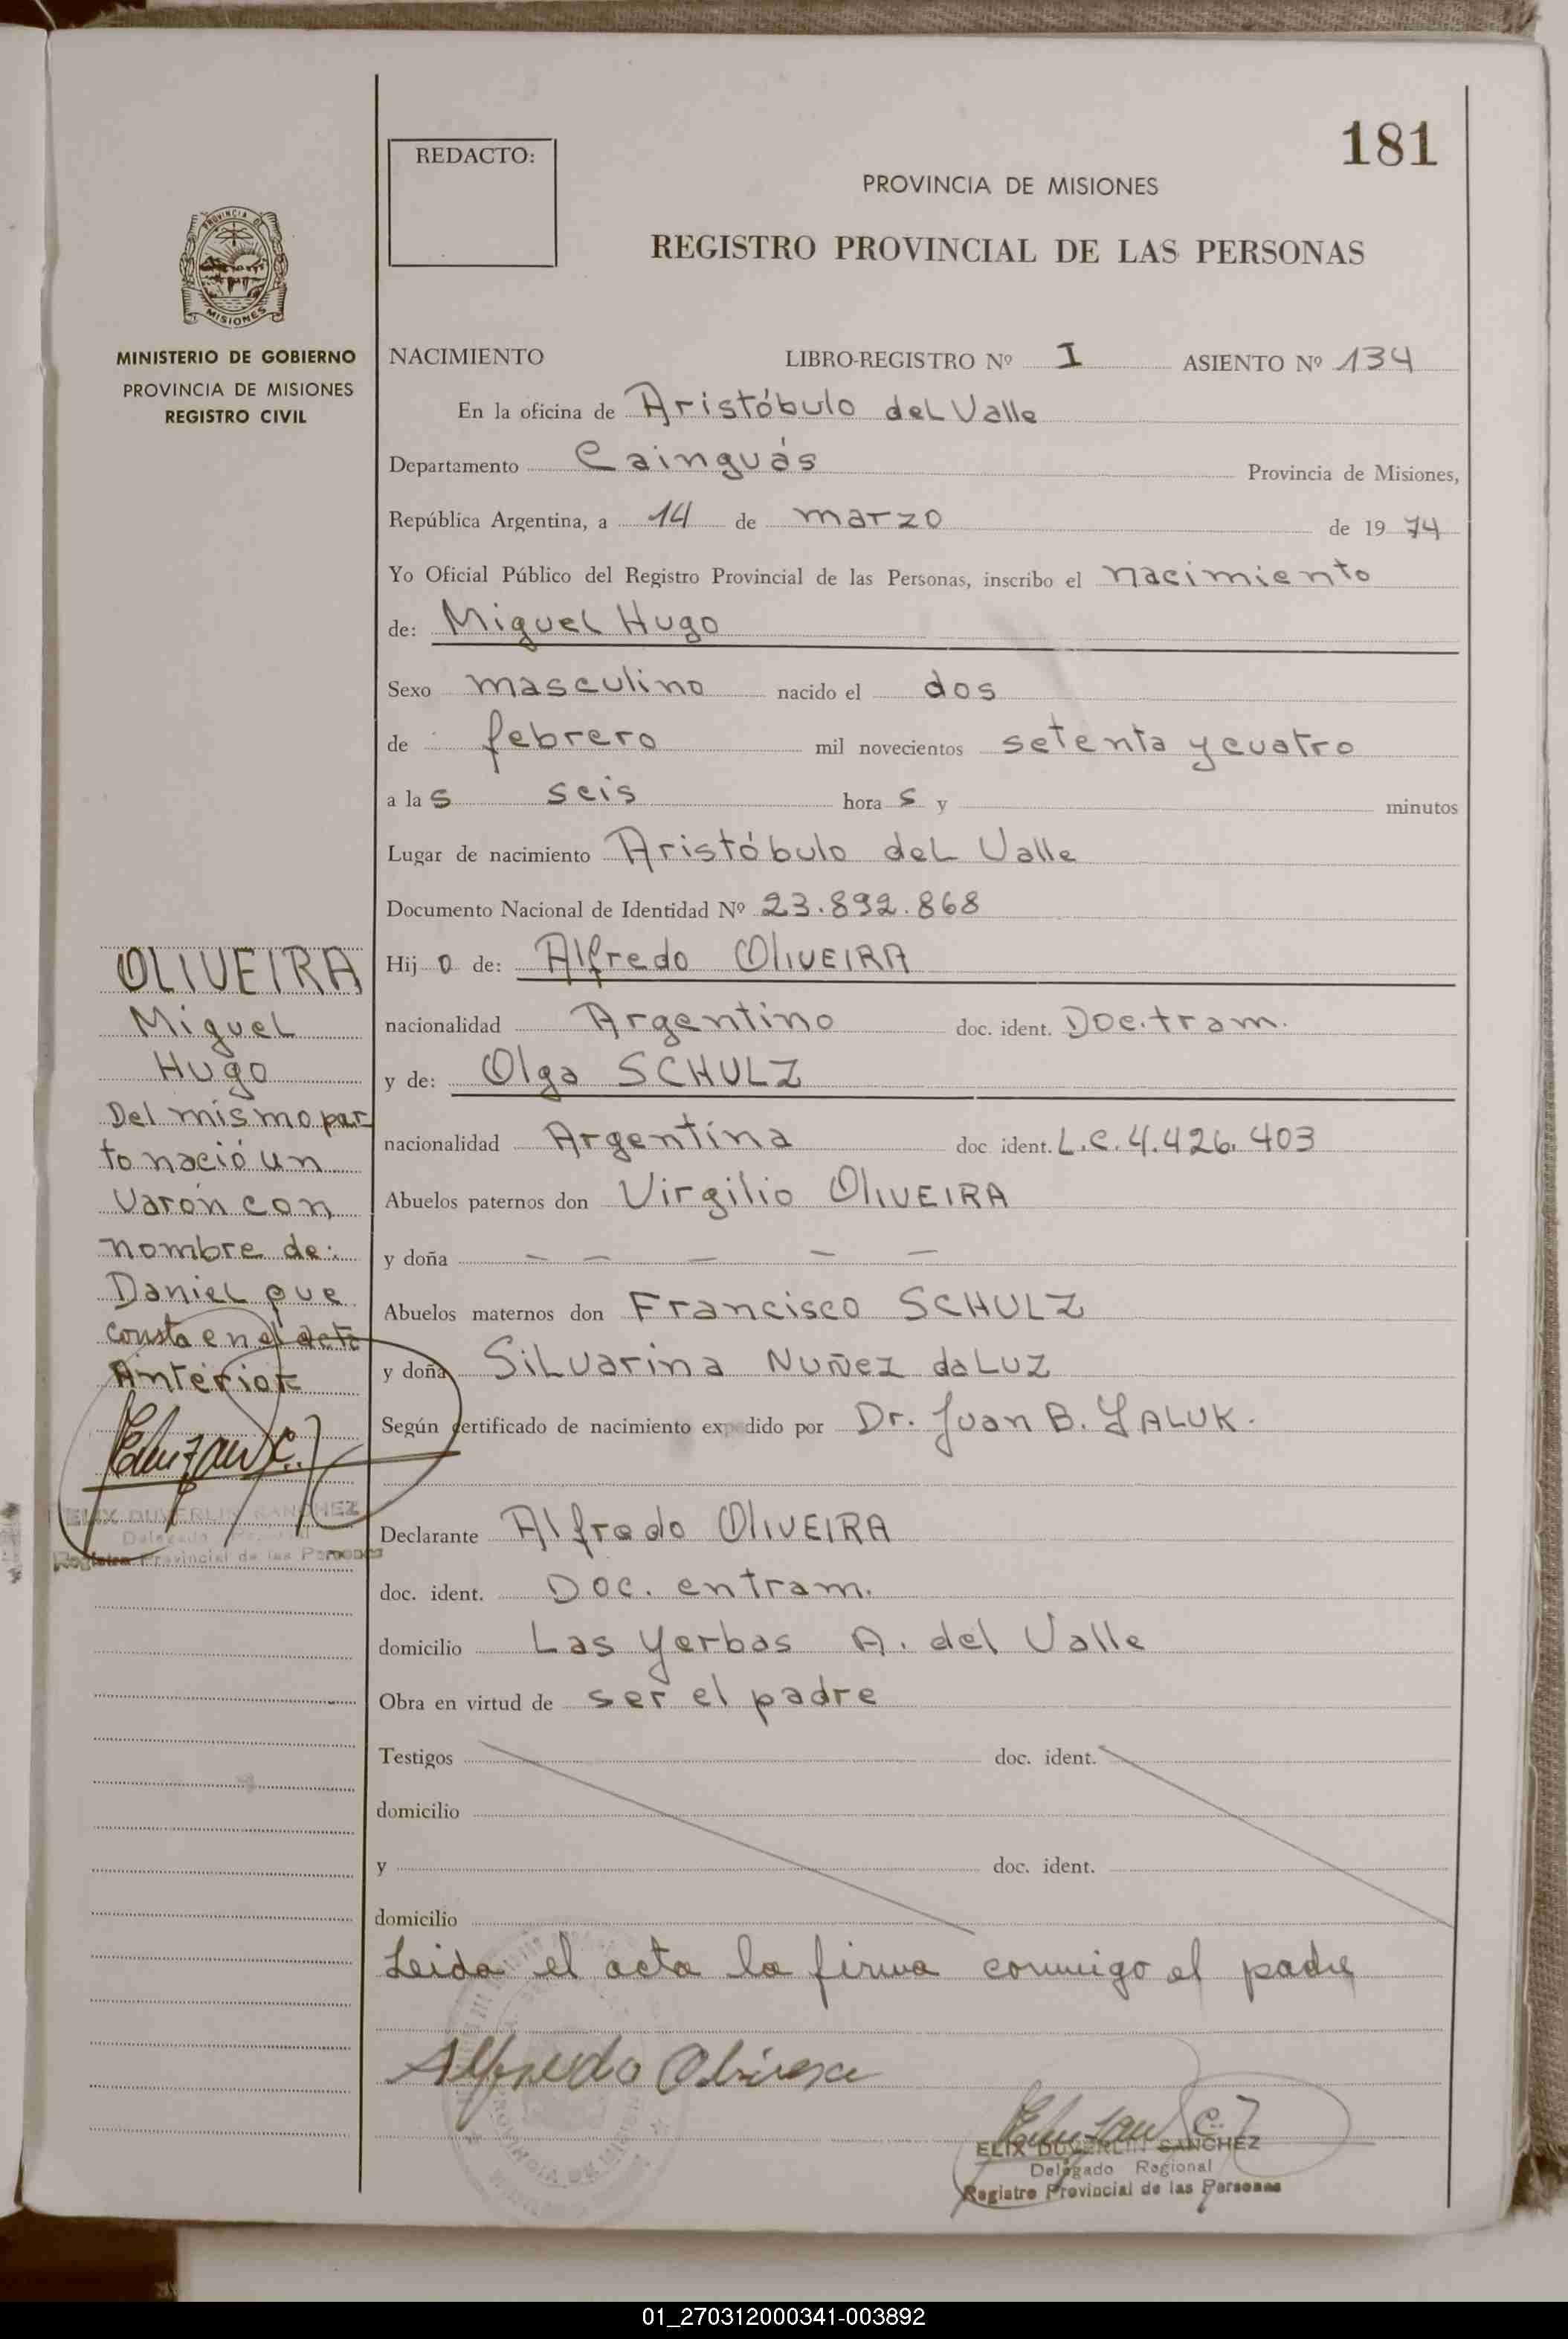 181
REDACTO:
PROVINCIA DE MISIONES
REGISTRO PROVINCIAL DE LAS PERSONAS
PROVINCIA DE
MISIONES
MINISTERIO DE GOBIERNO
PROVINCIA DE MISIONES
REGISTRO CIVIL
NACIMIENTO LIBRO-REGISTRO Nº I ASIENTO Nº 134
En la oficina de Aristóbulo del Valle
Departamento Cainguás Provincia de Misiones,
República Argentina, a 14 de marzo de 1974
Yo Oficial Público del Registro Provincial de las Personas, inscribo el nacimiento
de: Miguel Hugo
Sexo masculino nacido el dos
de febrero mil novecientos setenta y cuatro
a las seis horas y minutos
Lugar de nacimiento Aristóbulo del Valle
Documento Nacional de Identidad Nº 23.892.868
Hijo de: Alfredo OLIVEIRA
nacionalidad Argentino doc. ident. Doc. tram.
y de: Olga SCHULZ
nacionalidad Argentina doc ident. L.C. 4.426.403
Abuelos paternos don Virgilio OLIVEIRA
y doña — — — — —
Abuelos maternos don Francisco SCHULZ
y doña Silvarina NUÑEZ da LUZ
Según certificado de nacimiento expedido por Dr. Juan B. YALUK.
Declarante Alfredo OLIVEIRA
doc. ident. Doc. en tram.
domicilio Las Yerbas A. del Valle
Obra en virtud de ser el padre
Testigos doc. ident.
domicilio
y doc. ident.
domicilio
Leida el acta la firma conmigo el padre
Alfredo Olivera
ELIX DUVERLIN SANCHEZ
Delegado Regional
Registro Provincial de las Personas
OLIVEIRA
Miguel
Hugo
Del mismo par-
to nació un
Varón con
nombre de:
Daniel que
consta en el acta
Anterior
FELIX DUVERLIN SANCHEZ
Delegado Regional
Registro Provincial de las Personas
01_270312000341-003892